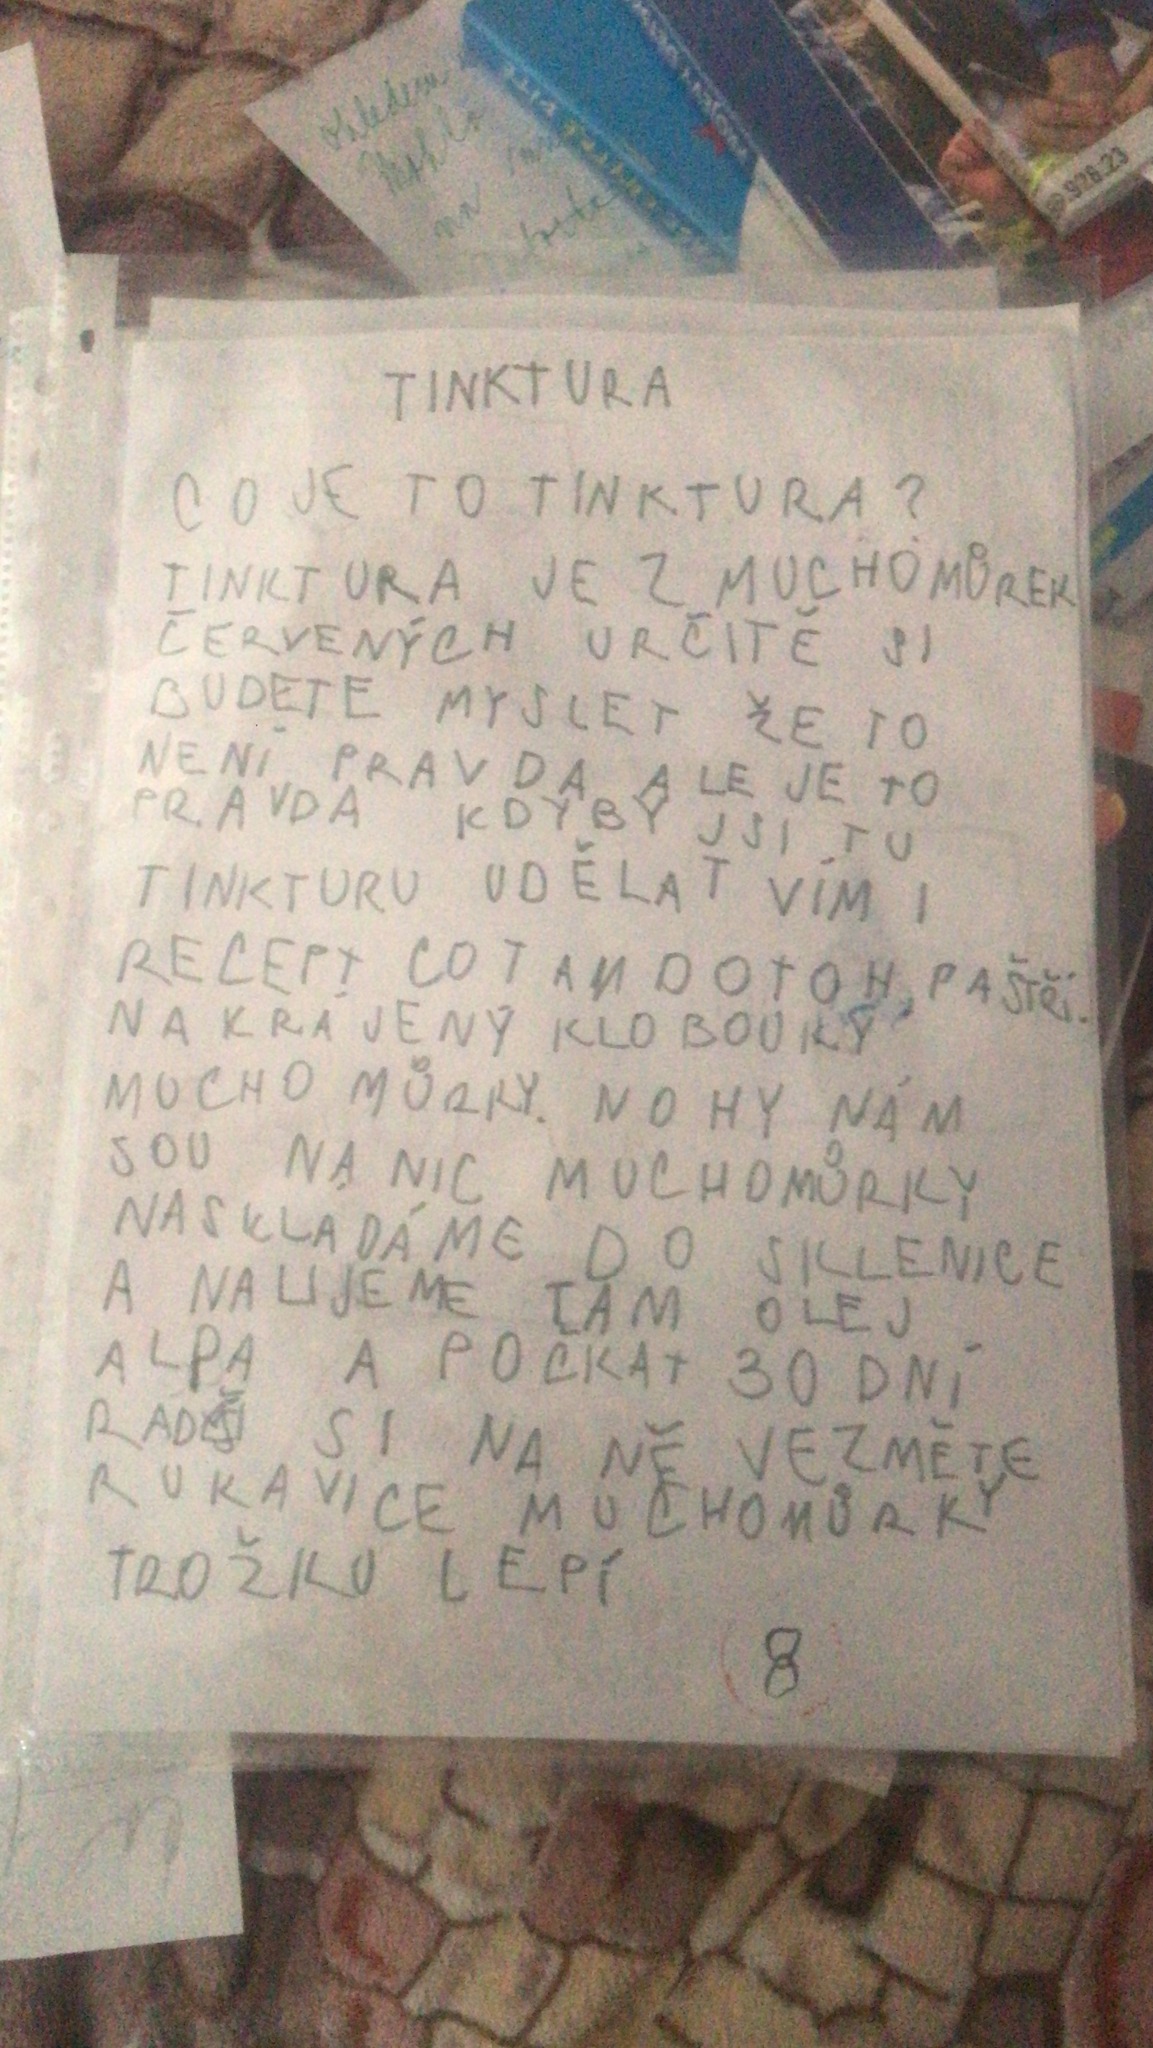 976.23
TINKTURA
CO JE TO TINKTURA?
TINKTURA JE Z MUCHOMŮREK
ČERVENÝCH URČITĚ SI
BUDETE MYSLET ŽE TO
NENÍ PRAVDA ALE JE TO
PRAVDA KDYBY JSI TU
TINKTURU UDĚLAT VÍM I
RECEPT CO TAM DOTOH PAŠTŘÍ.
NAKRÁJENÝ KLOBOUKY
MUCHOMŮRKY. NOHY NÁM
SOU NA NIC MUCHOMŮRKY
NASKLADÁME DO SKLENICE
A NALIJEME TAM OLEJ
ALPA A POČKAT 30 DNÍ
RADŠI SI NA NĚ VEZMĚTE
RUKAVICE MUCHOMŮRKY
TROŽKU LEPÍ
8